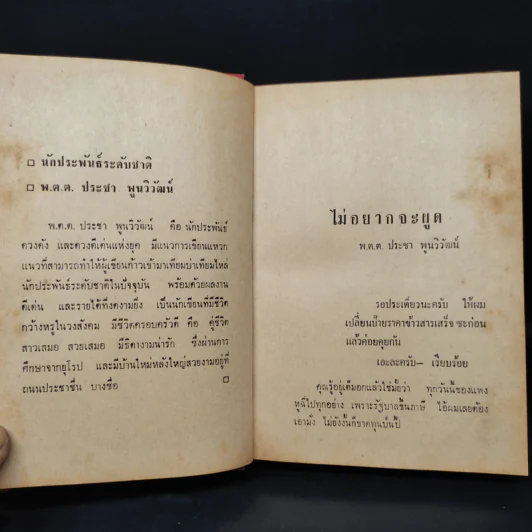 นักประพันธ์ระดับชาติ
พ.ต.ต. ประชา พูนวิวัฒน์
พ.ต.ต. ประชา พูนวิวัฒน์ คือ นักประพันธ์
ดวงดัง และดวงดีเด่นแห่งยุค มีแนวการเขียนแหวก
แนวที่สามารถทำให้ผู้เขียนก้าวเข้ามาเทียมบ่าเทียมไหล่
นักประพันธ์ระดับชาติในปัจจุบัน พร้อมด้วยผลงาน
ดีเด่น และรายได้ที่งดงามยิ่ง เป็นนักเขียนที่มีชีวิต
กว้างหรูในวงสังคม มีชีวิตครอบครัวดี คือ คู่ชีวิต
สาวเสมอ สวยเสมอ มีธิดางามน่ารัก ซึ่งผ่านการ
ศึกษาจากยุโรป และมีบ้านใหม่หลังใหญ่สวยงามอยู่ที่
ถนนประชาชื่น บางซื่อ
ไม่อยากจะยูด
พ.ต.ต. ประชา พูนวิวัฒน์
รอประเดี๋ยวนะครับ ให้ผม
เปลี่ยนป้ายราคาข้าวสารเสร็จ ซะก่อน
แล้วค่อยคุยกัน
เอาละครับ– เรียบร้อย
คุณรู้อยู่เต็มอกแล้วใช่มั้ยว่า ทุกวันนี้ของแพง
หูฉี่ไปทุกอย่าง เพราะรัฐบาลขึ้นภาษี ไอ้ผมเลยต้อง
เอามั่ง ไม่ยังงั้นก็ขาดทุนป่นปี้